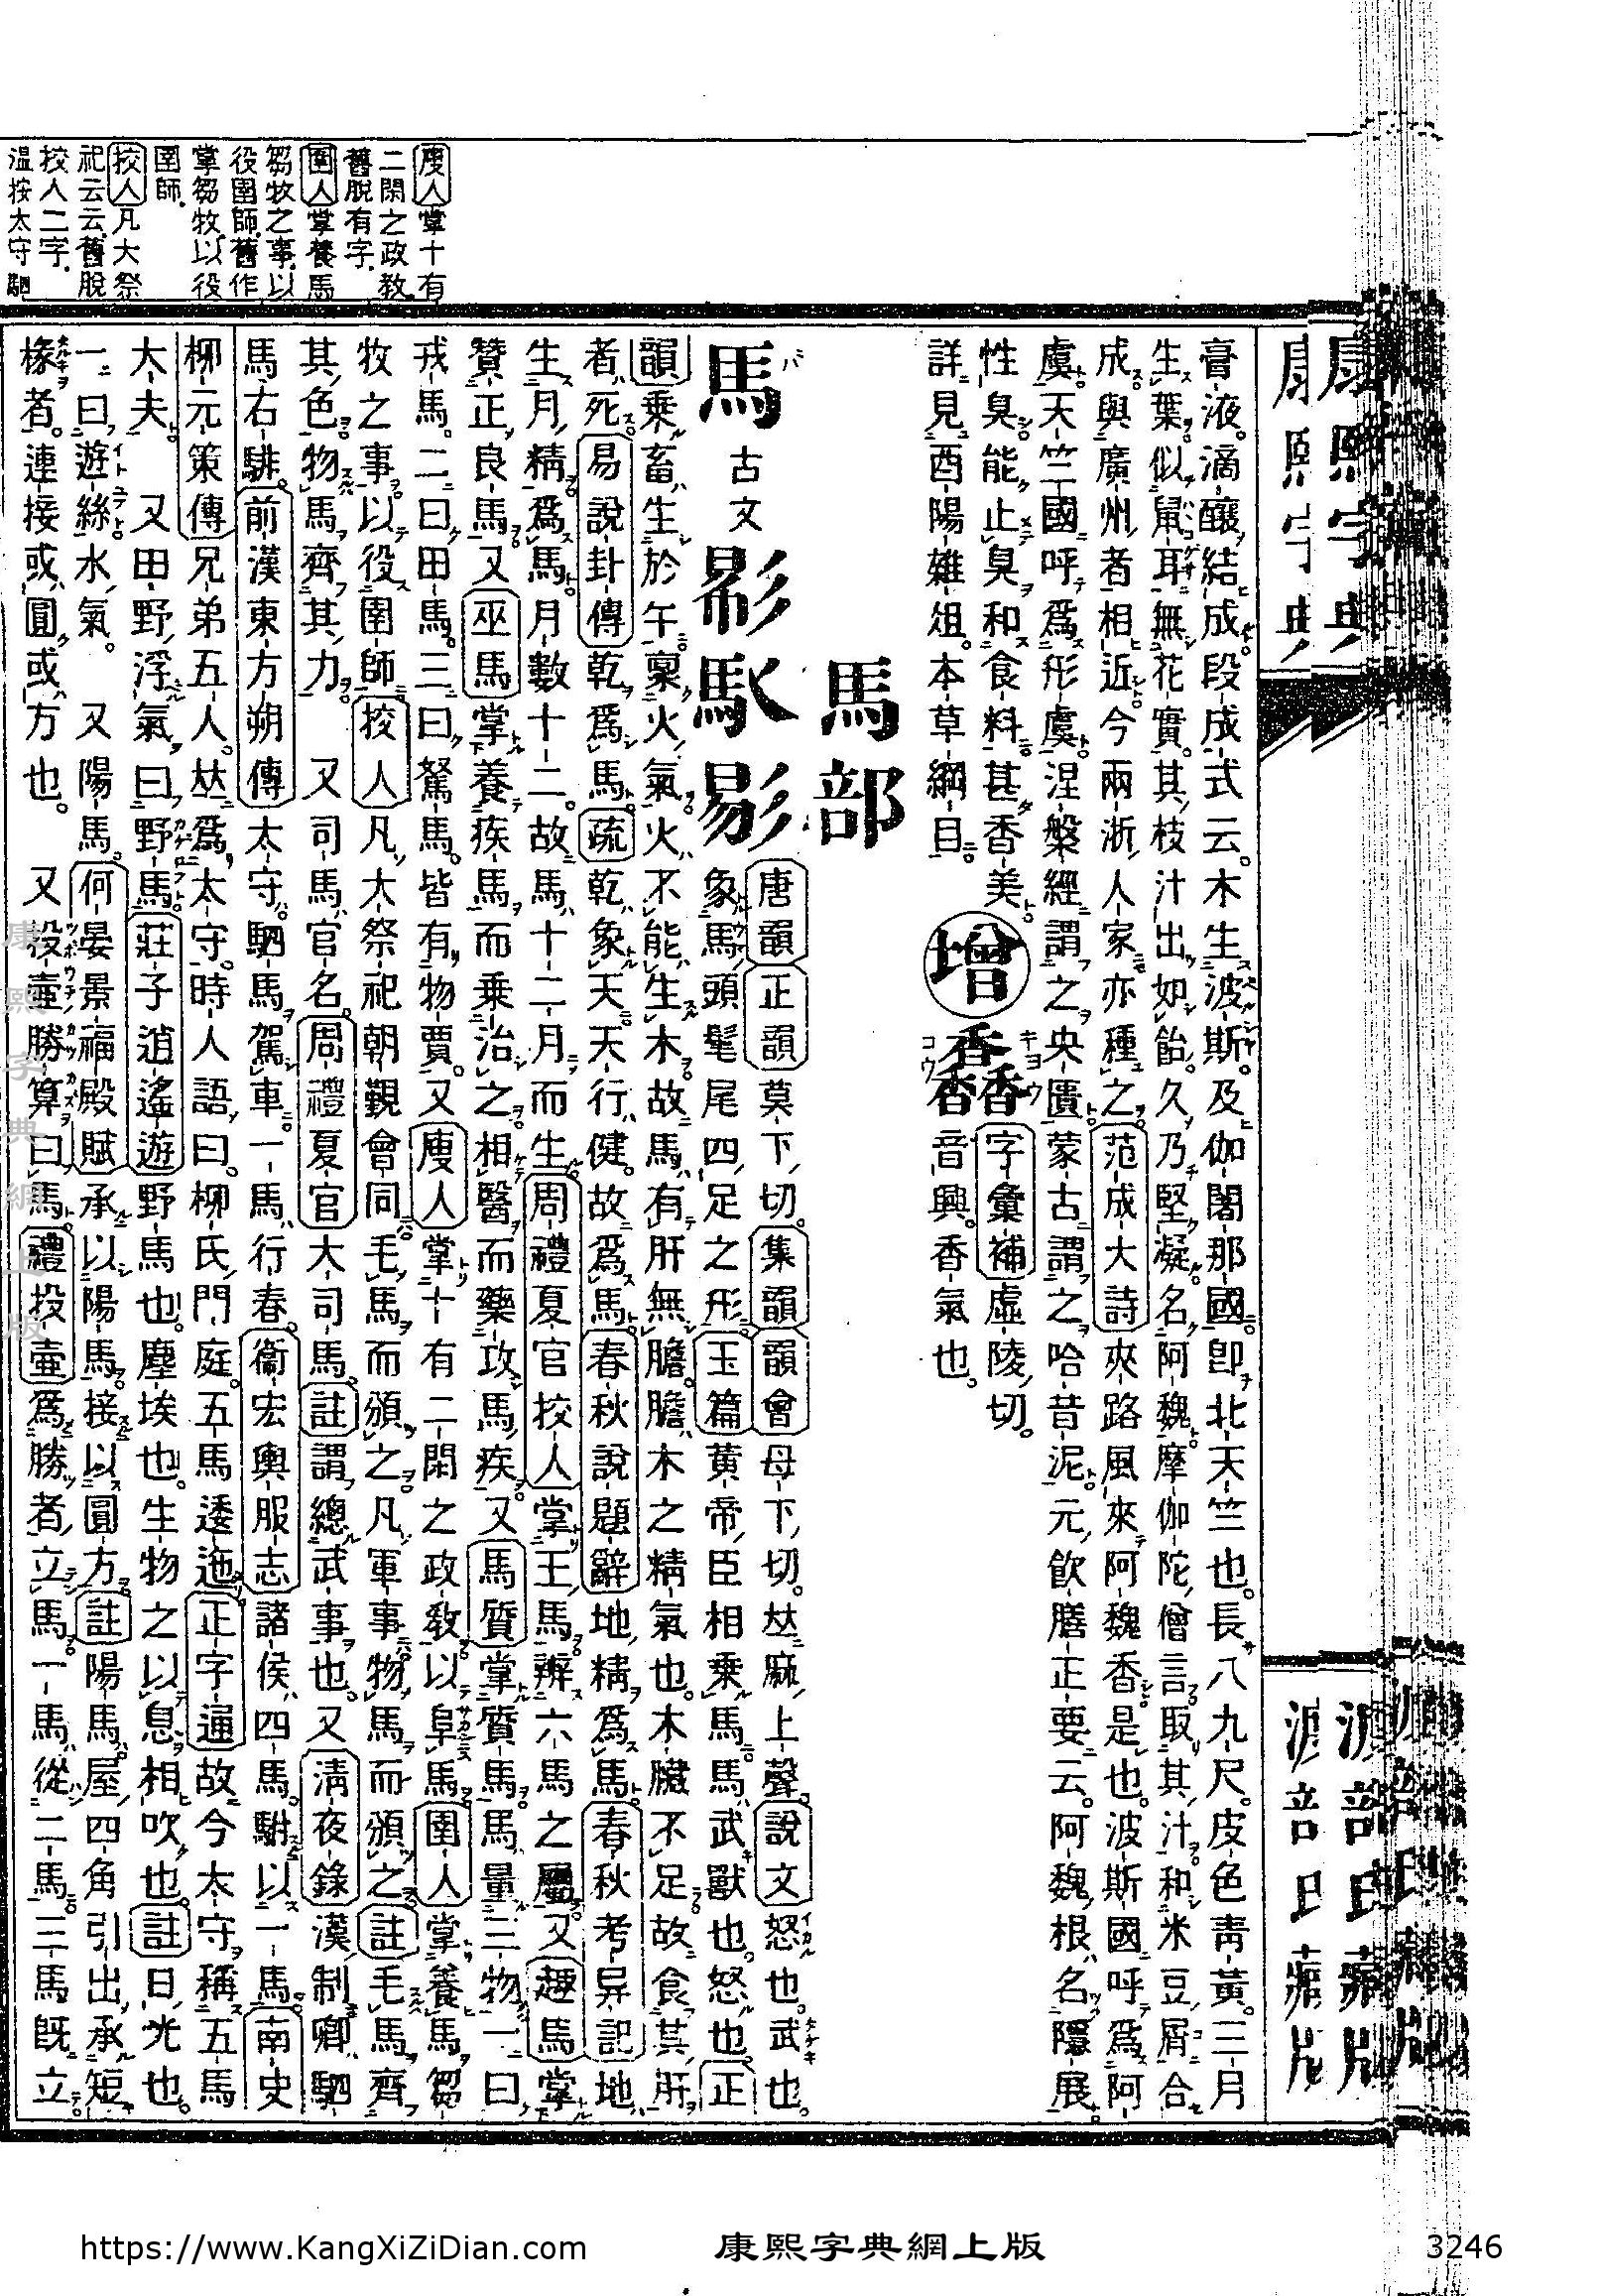 康熙字典
膏液滴釀結成段成式云木生波斯及伽闍那國卽北天竺也長八九尺皮色靑黃三月
生葉似鼠耳無花實其枝汁出如飴久乃堅凝名阿魏摩伽陀僧言取其汁和米豆屑合
成與廣州者相近今兩浙人家亦種之范成大詩夾路風來阿魏香是也波斯國呼爲阿
虞天竺國呼爲形虞涅槃經謂之央匱蒙古謂之哈昔泥元飮膳正要云阿魏根名隱展
性臭能止臭和食料甚香美
詳見酉陽雜俎本草綱目
增
字彙補虛陵切
音興香氣也
馬部
馬
古文
唐韻正韻莫下切集韻韻會母下切𠀤麻上聲說文怒也武也
象馬頭髦尾四足之形玉篇黃帝臣相乘馬馬武獸也怒也正
韻乘畜生於午稟火氣火不能生木故馬有肝無膽膽木之精氣也木臟不足故食其肝
者死易說卦傳乾爲馬疏乾象天天行健故爲馬春秋說題辭地精爲馬春秋考异記地
生月精爲馬月數十二故馬十二月而生周禮夏官校人掌王馬辨六馬之屬又趣馬掌
贊正良馬又巫馬掌養疾馬而乘治之相醫而藥攻馬疾又馬質掌質馬馬量三物一曰
戎馬二曰田馬三曰駑馬皆有物賈又廋人掌十有二閑之政敎以阜馬圉人掌養馬芻
牧之事以役圉師校人凡大祭祀朝覲會同毛馬而頒之凡軍事物馬而頒之註毛馬齊
其色物馬齊其力 又司馬官名周禮夏官大司馬註謂總武事也又淸夜錄漢制卿駟
馬右騑前漢東方朔傳太守駟馬駕車一馬行春衞宏輿服志諸侯四馬駙以一馬南史
柳元策傳兄弟五人𠀤爲太守時人語曰柳氏門庭五馬逶迤正字通故今太守稱五馬
大夫 又田野浮氣曰野馬莊子逍遙遊野馬也塵埃也生物之以息相吹也註日光也
一曰遊絲水氣 又陽馬何晏景福殿賦承以陽馬接以圓方註陽馬屋四角引出承短
椽者連接或圓或方也 又投壷勝算曰馬禮投壷爲勝者立馬一馬從二馬三馬旣立
廋人掌十有
二閑之政敎
舊脫有字
圉人掌養馬
芻牧之事以
役圉師舊作
掌芻牧以役
圉師
校人凡大祭
祀云云舊脫
校人二字
温按太守駟
康熙字典網上版
https://www.KangXiZiDian.com
康熙字典網上版
3246